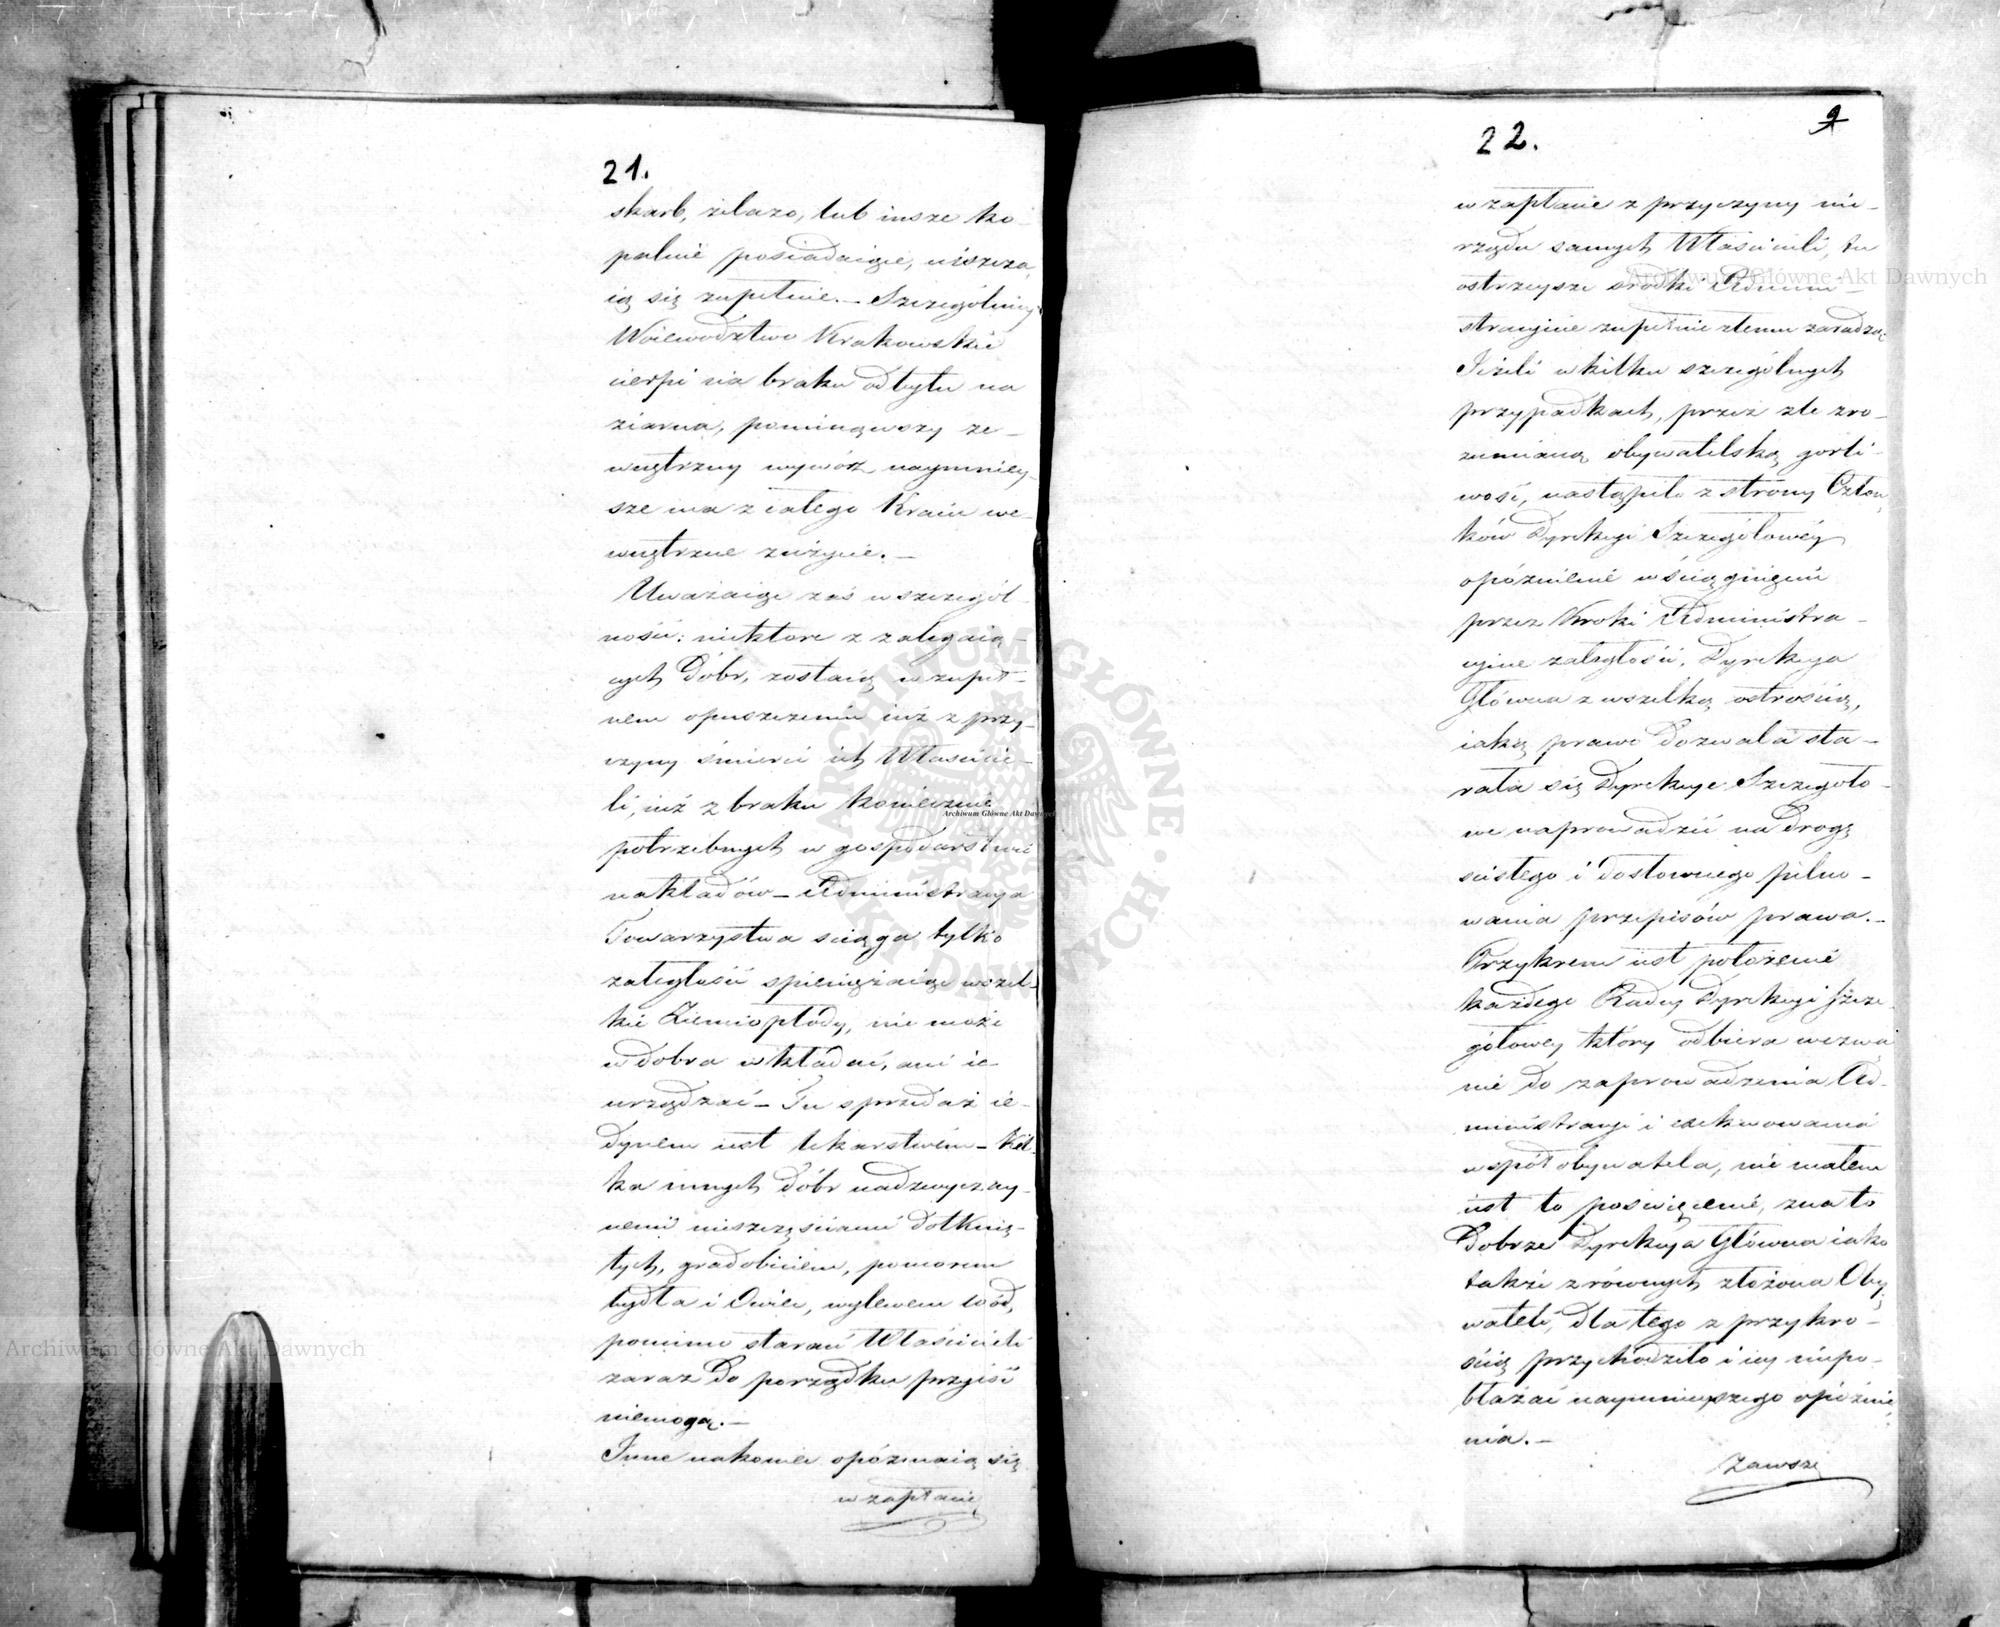 21.
skarb, żelazo, lub insze ko-
palnie posiadaiące, niszczą
ią się zupełnie. - Szczególniey
Woiewodztwo Krakowskie
cierpi na braku odbytu na
ziarna, pominąwszy ze-
wnętrzny wywóz naymniey-
sze ma z całego Kraiu we-
wnętrzne zużycie. -
Uważaiąc zaś w szczegól-
ności: niektóre z zalegaią-
cych Dóbr, zostaią w zupeł-
nem opuszczeniu iuż z przy-
czyny śmierci ich Właścicie-
li, iuż z braku koniecznie
potrzebnych w gospodarstwie
nakładów - Administracya
Towarzystwa ściąga tylko
zaległości spieniężaiąc wszel-
kie Ziemiopłody, nie może
w dobra wkładać, ani ie
urządzać - Tu sprzedaż ie-
dynem iest lekarstwem - Kil-
ka innych Dóbr nadzwyczay-
nemi nieszczęściami dotknię-
tych, gradobiciem, pomorem
bydła i Owiec, wylewem wód,
pomimo starań Właścicieli
zaraz do porządku przyiść
niemogą. -
Inne nakoniec opóźniaią się
w zapłacie
22.
9
w zapłacie z przyczyny nie-
rządu samych Właścicieli, tu
ostrzeysze srodki Admini-
stracyine zupełnie złemu zaradzą
Jeżeli w kilku szczególnych
przypadkach, przez źle zro-
zumianą obywatelską gorli-
wość, nastąpiło z strony Człon-
ków Dyrekcyi Szczegółowéy
opóźnienie w ściągnięciu
przez Kroki Administra-
cyine zaległości, Dyrekcya
Główna z wszelką ostrością,
iaką prawo dozwala sta-
rała się Dyrekcye Szczegóło-
we naprowadzić na drogę
ścisłego i dosłownego pilno-
wania przepisów prawa. -
Przykrem iest położenie
każdego Radcy Dyrekcyi Szcze-
gółowey który odbiera wezwa
nie do zaprowadzenia Ad-
ministracyi i exekwowania
współobywatela, nie małem
iest to poświęcenie, zna to
Dobrze Dyrekcya Główna iako
także z równych złożona Oby
wateli, dla tego z przykro-
ścią przychodziło i iey niepo-
błażać naymnieyszego opóźnie
nia. -
Zawsze
Archiwum Główne Akt Dawnych
Archiwum Główne Akt Dawnych
Archiwum Główne Akt Dawnych
ARCHIWUM GŁÓWNE AKT DAWNYCH